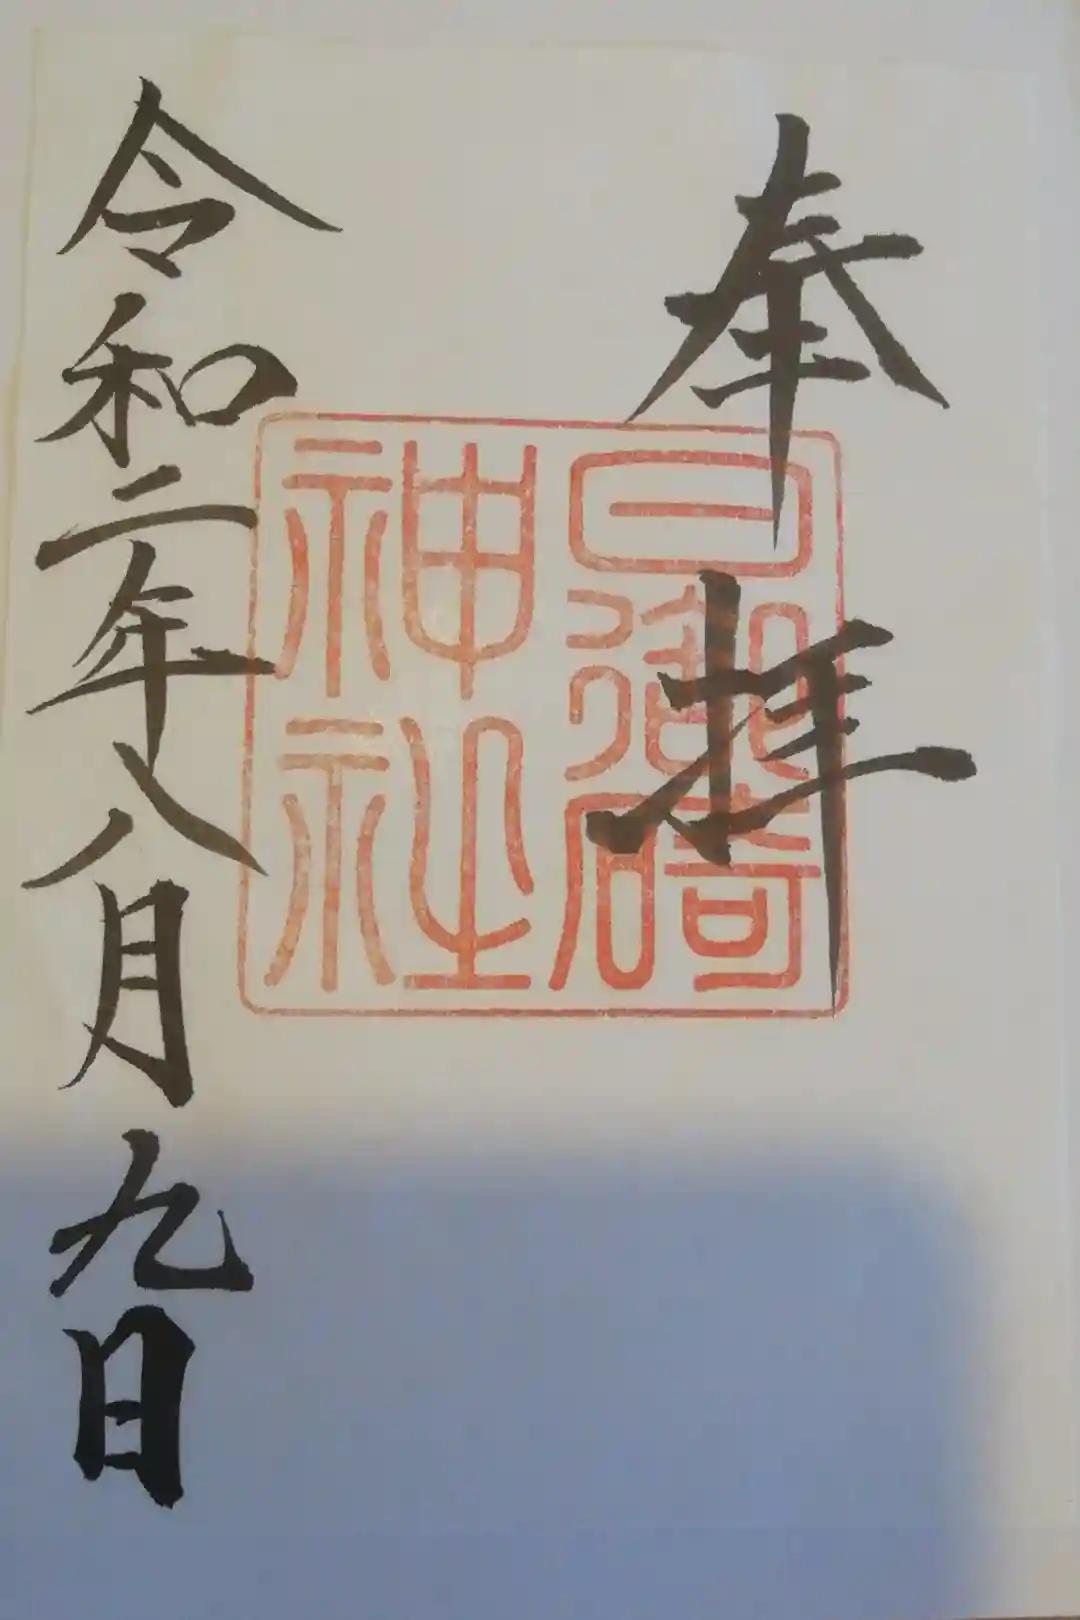 奉拝
日御碕
神社
令和二年八月九日